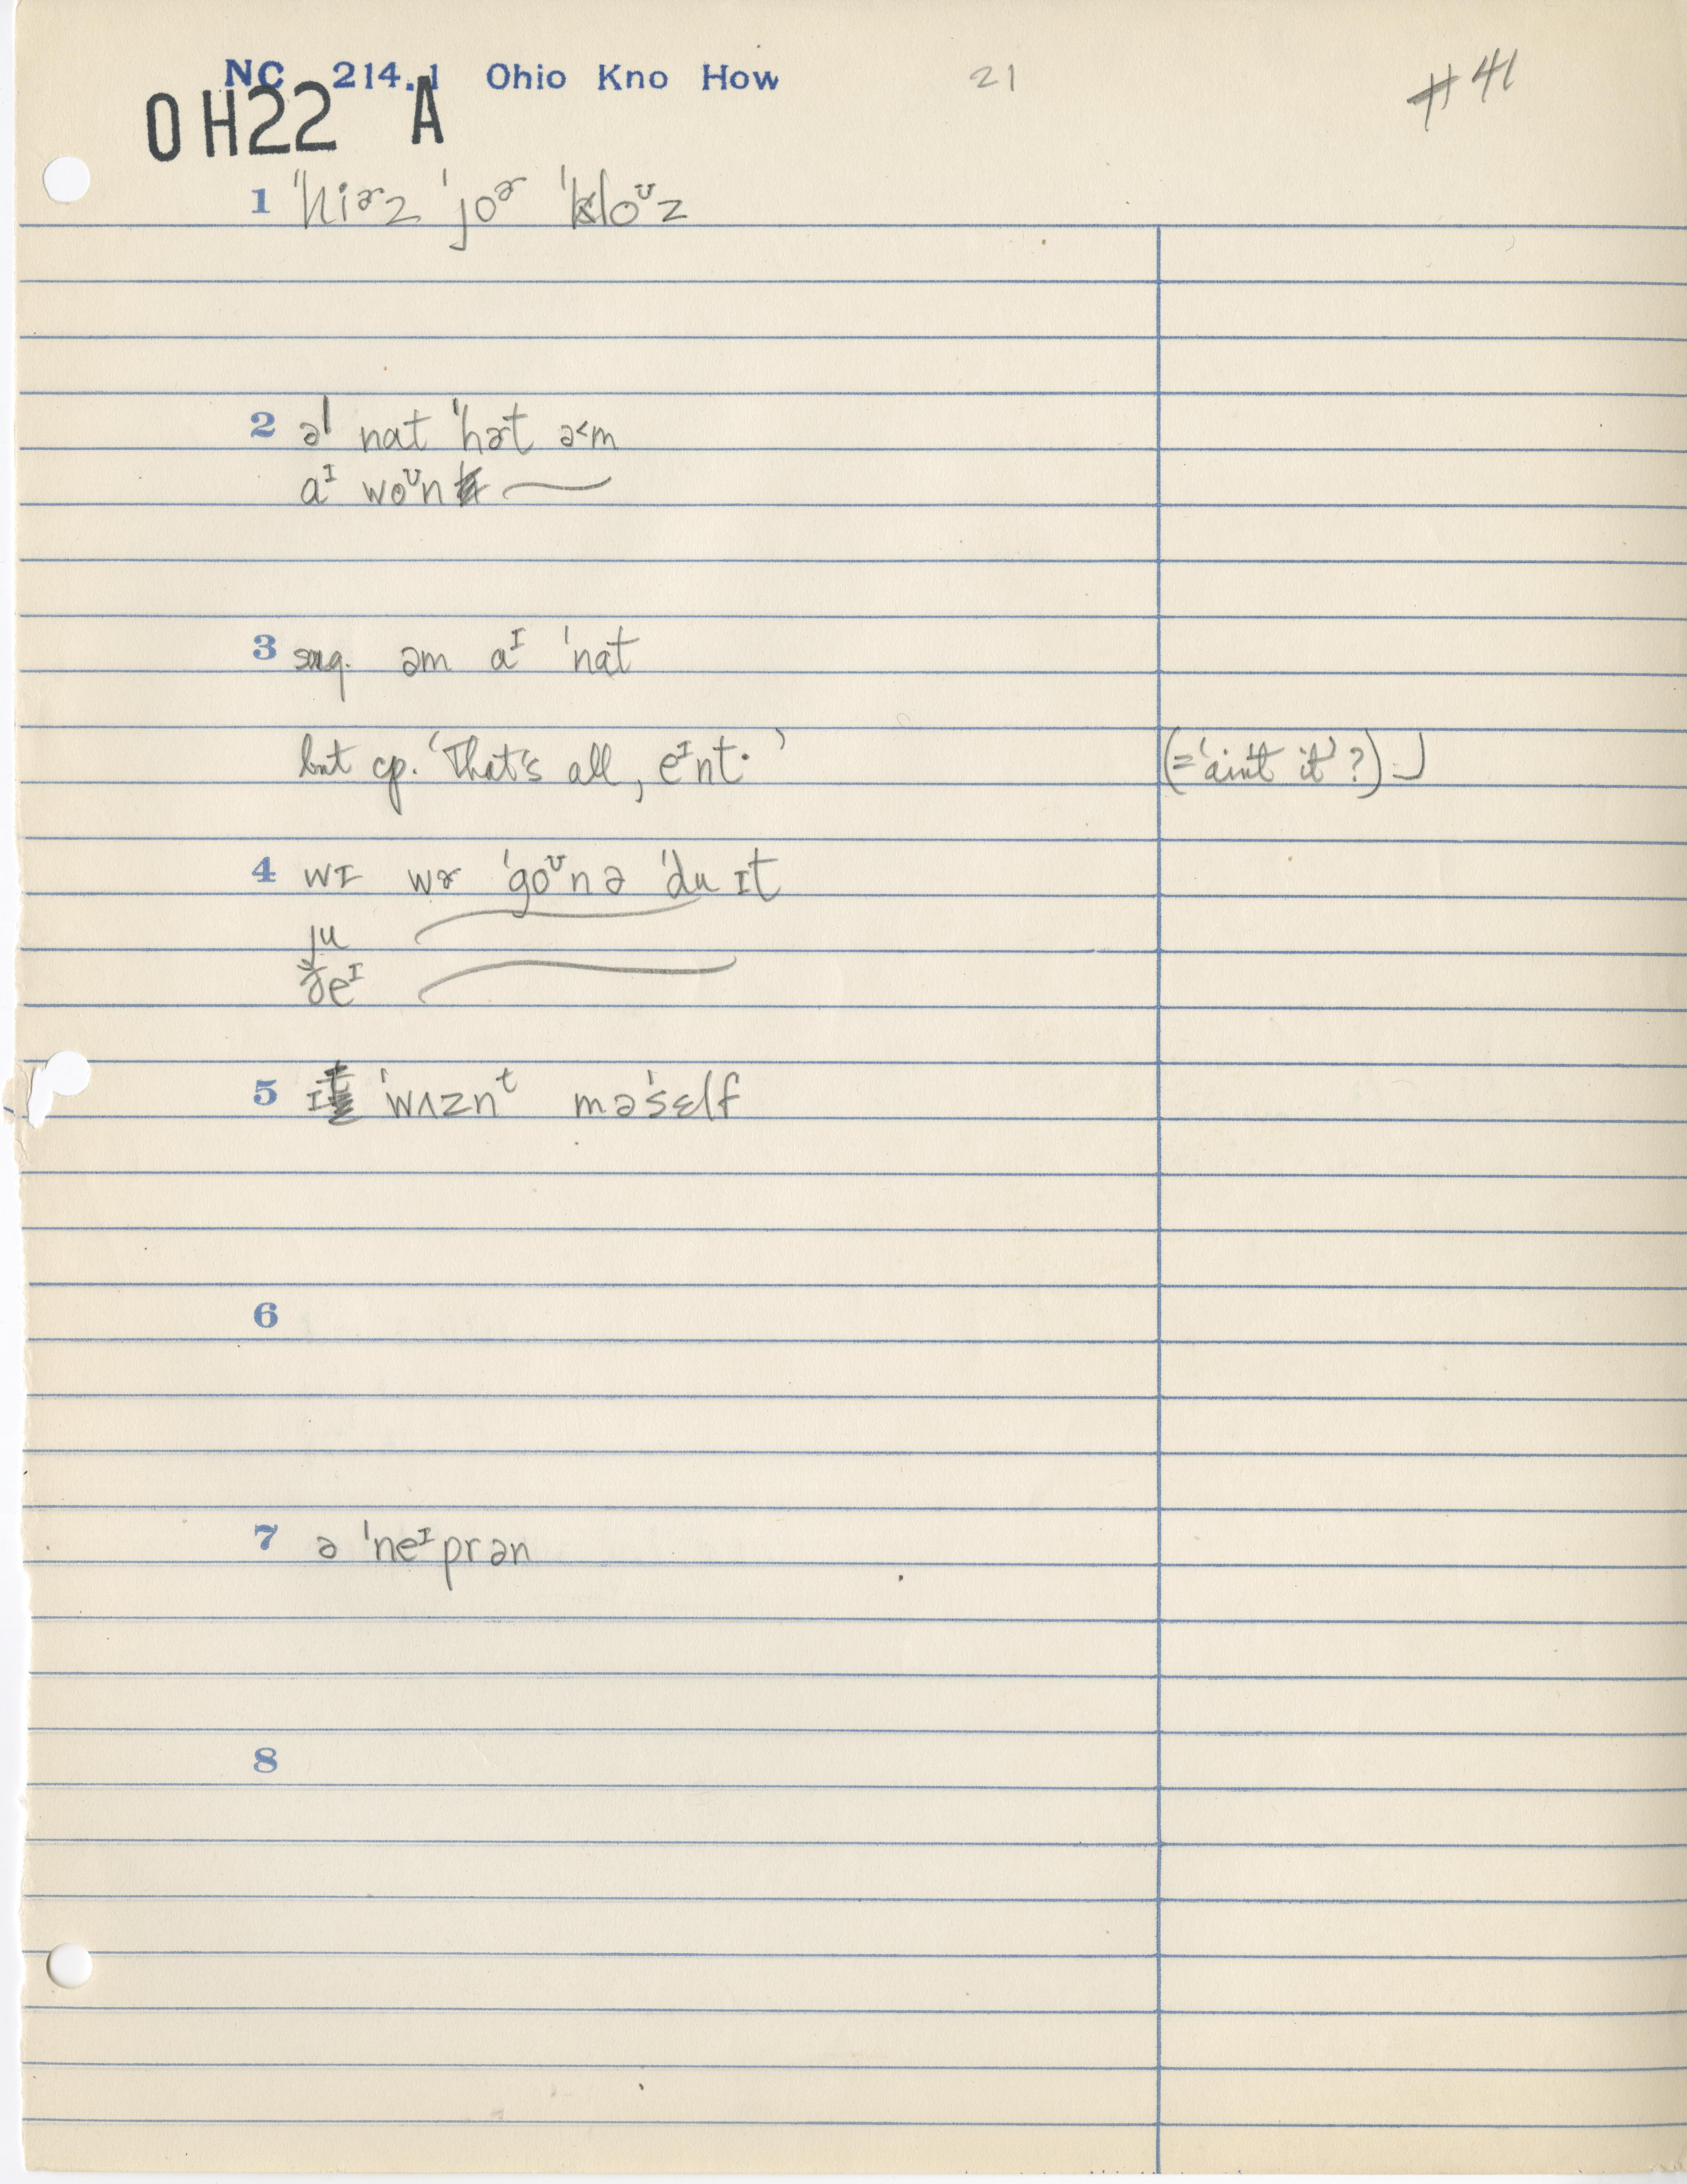 NC 214.1 Ohio Kno How 21 #41
OH22 A
1 ˈhiɚz ˈjoɚ ˈkloᶷz
2 əl nat ˈhɚt ə˂m
aᴵ woᶷn
3 sug. əm aᴵ ˈnat
but cp. 'That's all, eᴵnt.' (='ain't it'?)
4 wɪ wɚ ˈgoᶷnə ˈdu ɪt
ju
ðeᴵ
5 ɪt ˈwʌznᵗ məˈsɛlf
6
7 ə ˈneᴵprən
8